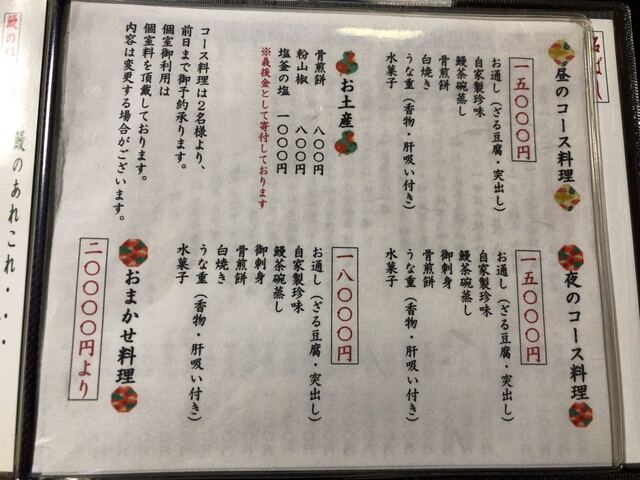 昼のコース料理
一五〇〇〇円
お通し（ざる豆腐・突出し）
自家製珍味
鰻茶碗蒸し
骨煎餅
白焼き
うな重（香物・肝吸い付き）
水菓子
お土産
骨煎餅 八〇〇円
粉山椒 八〇〇円
塩釜の塩 一〇〇〇円
※義援金として寄付しております
コース料理は２名様より、
前日まで御予約承ります。
個室御利用は
個室料を頂戴しております。
内容は変更する場合がございます。
夜のコース料理
一五〇〇〇円
お通し（ざる豆腐・突出し）
自家製珍味
鰻茶碗蒸し
御刺身
骨煎餅
白焼き
うな重（香物・肝吸い付き）
水菓子
一八〇〇〇円
お通し（ざる豆腐・突出し）
自家製珍味
鰻茶碗蒸し
御刺身
骨煎餅
白焼き
うな重（香物・肝吸い付き）
水菓子
おまかせ料理
二〇〇〇〇円より
鰻のあれこれ・・・